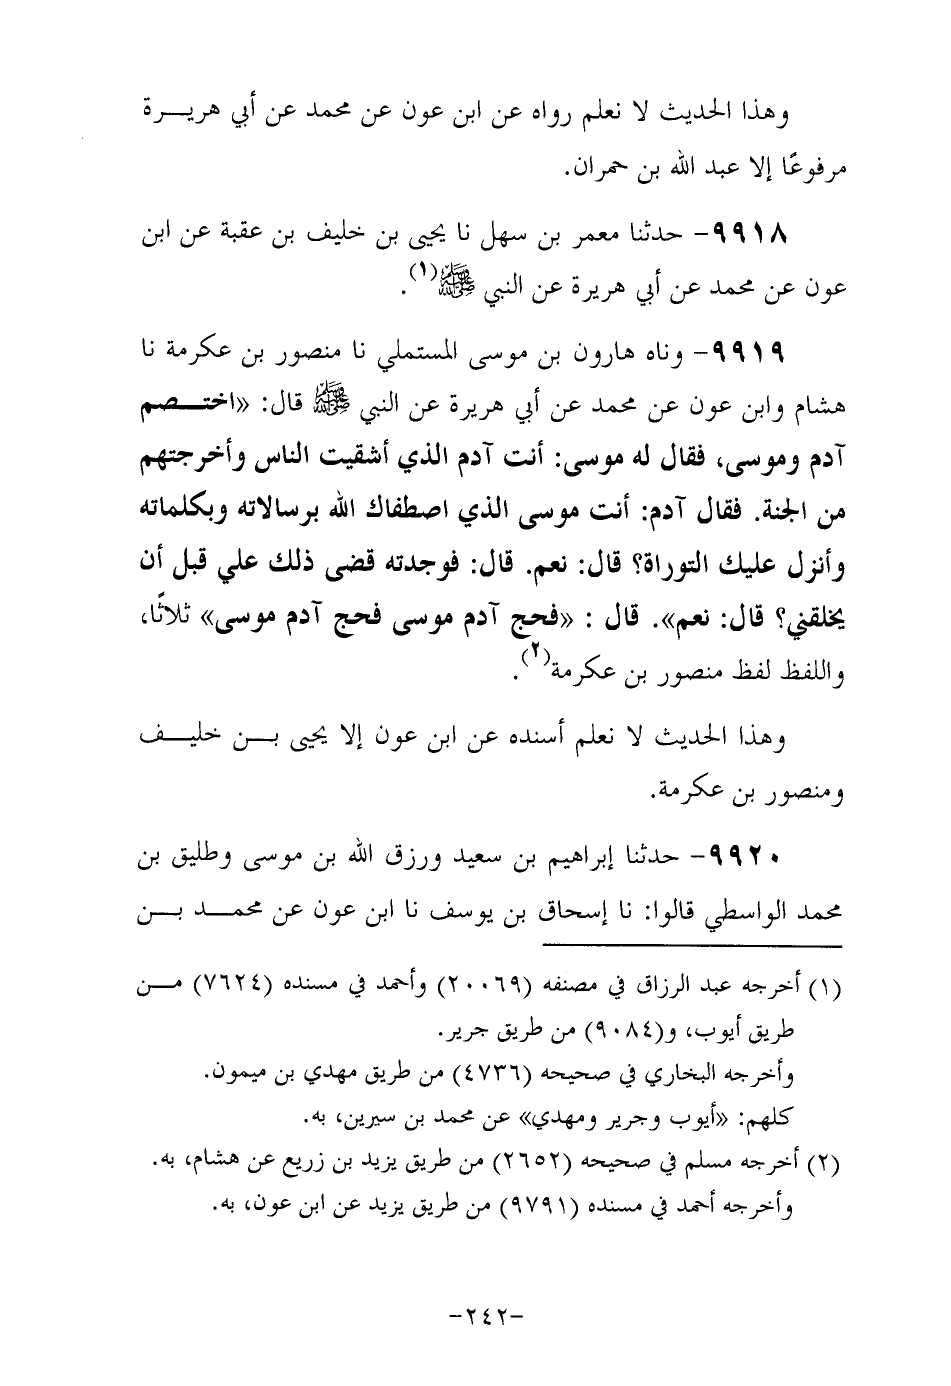 وهذا الحديث لا نعلم رواه عن ابن عون عن محمد عن أبي هريـــرة
مرفوعًا إلا عبد الله بن حمران.
٩٩١٨– حدثنا معمر بن سهل نا يحيى بن خليف بن عقبة عن ابن
عون عن محمد عن أبي هريرة عن النبي ﷺ(١).
٩٩١٩– وناه هارون بن موسى المستملي نا منصور بن عكرمة نا
هشام وابن عون عن محمد عن أبي هريرة عن النبي ﷺ قال: «اختـــصم
آدم وموسى، فقال له موسى: أنت آدم الذي أشقيت الناس وأخرجتهم
من الجنة. فقال آدم: أنت موسى الذي اصطفاك الله برسالاته وبكلماته
وأنزل عليك التوراة؟ قال: نعم. قال: فوجدته قضى ذلك علي قبل أن
يخلقني؟ قال: نعم». قال : «فحج آدم موسى فحج آدم موسى» ثلاثًا،
واللفظ لفظ منصور بن عكرمة(٢).
وهذا الحديث لا نعلم أسنده عن ابن عون إلا يحيى بـــن خليـــف
ومنصور بن عكرمة.
٩٩٢٠– حدثنا إبراهيم بن سعيد ورزق الله بن موسى وطليق بن
محمد الواسطي قالوا: نا إسحاق بن يوسف نا ابن عون عن محمـــد بـــن
(١) أخرجه عبد الرزاق في مصنفه (٢٠٠٦٩) وأحمد في مسنده (٧٦٢٤) مـــن
طريق أيوب، و(٩٠٨٤) من طريق جرير.
وأخرجه البخاري في صحيحه (٤٧٣٦) من طريق مهدي بن ميمون.
كلهم: «أيوب وجرير ومهدي» عن محمد بن سيرين، به.
(٢) أخرجه مسلم في صحيحه (٢٦٥٢) من طريق يزيد بن زريع عن هشام، به.
وأخرجه أحمد في مسنده (٩٧٩١) من طريق يزيد عن ابن عون، به.
–٢٤٢–